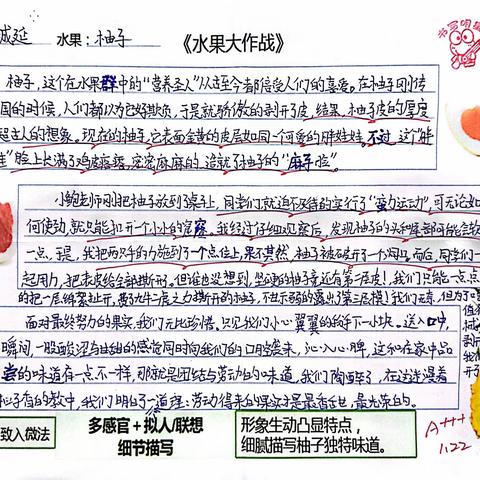 成延 水果：柚子 《水果大作战》
书写明星
柚子，这个在水果群中的“营养圣人”从古至今都倍受人们的喜爱。在柚子刚传
国的时候，人们都以为它好欺负，于是就骄傲的剥开了皮，结果，柚子皮的厚度
超出人的想象。现在的柚子，它表面金黄的皮层如同一个可爱的胖娃娃。不过 这个“胖
娃”脸上长满了鸡皮疙瘩，密密麻麻的，造就了柚子的“麻子脸”。
小鲍老师刚把柚子放到了桌上，同学们就迫不及待的实行了“蛮力运动”，可无论如
何使劲，就只能扣开一个小小的窟窿。我经过仔细观察后，发现柚子的头和蜂部可能会软
一点，于是，我把两只手的力施到了一个点位上，果不其然，柚子被破开了一个洞口，而后，同学们一
起用力，把表皮给全部撕开了。但谁也没想到，坚硬的柚子竟还有第二层皮！我们只能一点一点
的把一层绵絮扯开，费了九牛二虎之力撕开的柚子，不甘示弱的露出了第三层膜！我们无奈，但为了
面对最终努力的果实，我们无比珍惜。只见我们小心翼翼的掰下一小块。送入口中，
瞬间，一股酸涩与甘甜的感觉同时向我们的口腔袭来，沁入心脾，这和在家中品
尝的味道有一点不一样，那就是团结与劳动的味道，我们陶醉了，在这弥漫着
柚子香的教中，我们明白了一道理：劳动得来的果实才是最香甜，最光荣的。
致入微法
多感官＋拟人/联想
细节描写
形象生动凸显特点，
细腻描写柚子独特味道。
A+++
1.22